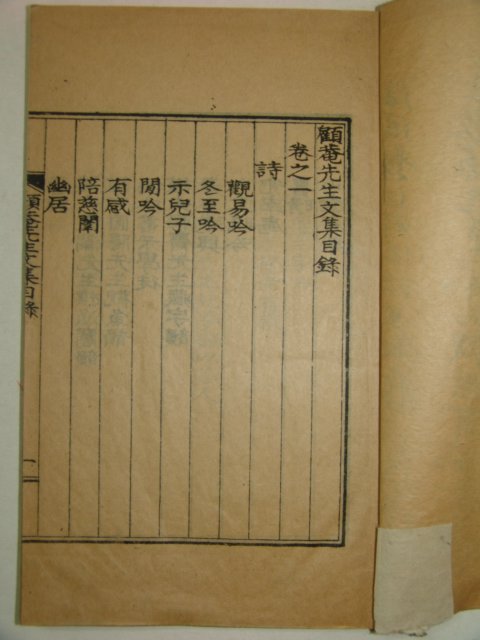 顧菴先生文集目錄
卷之一
詩
觀易吟
冬至吟
示兒子
閒吟
有感
陪慈闈
幽居
顧菴先生文集目錄
一